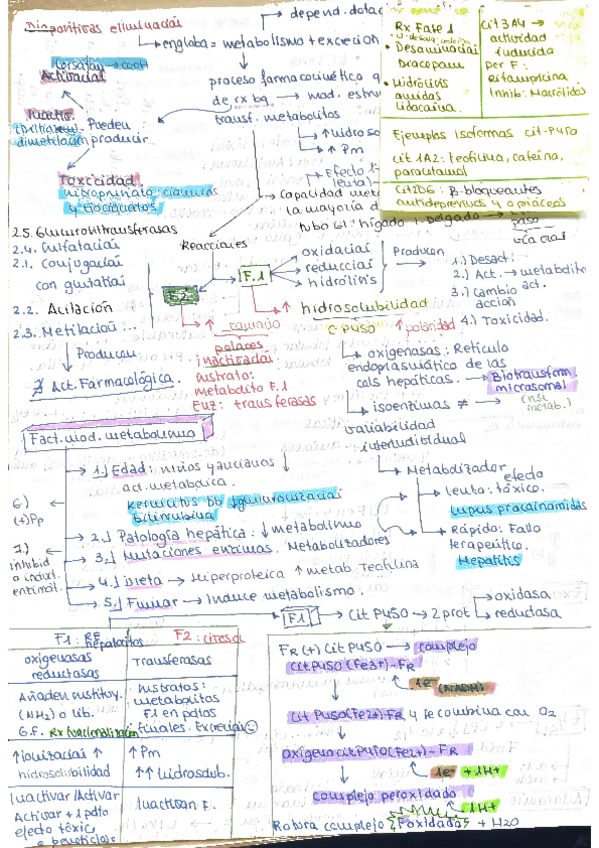 Dispositivas eliminación
→ depend. dotac
→ engloba = metabolismo + excreción
Losartán → COOH
Activación
proceso farmacocinético q
de rx bq → mod. estru
transf. metabolitos
Inactiv.
dimetilación
Pueden
producir
↑ hidroso
↑ Pm
Efecto 1
Toxicidad:
nitroprusiato: cianuros
y tiocianatos
→ capacidad met
la mayoría d
tubo GI: hígado I. Delgado
vía oral
Rx Fase 1
• Desaminación
Diazepam
• Hidrólisis
amidas
Lidocaína.
Cit3A4 →
actividad
inducida
per F:
rifampicina
Inhib: Macrólidos
Ejemplos isoformas cit-P450
Cit 1A2: teofilina, cafeína,
paracetamol
Cit2D6: β-bloqueantes
antidepresivos y opiáceos
2.5. Glucuroniltransferasas
2.4. Sulfatación
2.1. Conjugación
con glutatión
2.2. Acilación
2.3. Metilación...
Reacciones
F.2
F.1
oxidación
reducción
hidrólisis
Producen
1.) Desact.
2.) Act. → metabolito
act.
3.) Cambio
acción
4.) Toxicidad.
↑ hidrosolubilidad
C P450 ↑ polaridad
↑ tamaño
polares
inactivación
Sustrato:
metabolito F.1
Enz: transferasas
↓ Producen
Act. Farmacológica.
↳ oxigenasas: Retículo
endoplasmático de las
cels hepáticas. → Biotransform.
microsomal
↳ isoenzimas ≠ → (≠
metab.)
variabilidad
interindividual
Fact. mod. metabolismo
→ 1.) Edad: niños y ancianos ↓
act. metabólica.
Kernicterus bb ↓ glucuronización
bilirrubina
6.)
(+)Pp
→ 2.) Patología hepática: ↓ metabolismo
→ 3.) Mutaciones enzimas. Metabolizadores
7.)
inhibid
o induc.
enzimát.
→ 4.) Dieta → Hiperproteica ↑ metab. Teofilina
→ 5.) Fumar → Induce metabolismo.
↳ Metabolizador
→ lento: efecto tóxico.
Lupus procainamidas
→ Rápido: Fallo
terapéutico.
Hepatitis
F1 → Cit P450 → 2 prot.
→ oxidasa
→ reductasa
F1: RE hepatocitos
F2: citosol
oxigenasas
reductasas
Transferasas
Añaden sustituy.
(NH₂) o lib.
G.F. Rx funcionalización
Sustratos:
metabolitos
F1 en pdtos
finales. Excreción
↑ ionización ↑
hidrosolubilidad
↑ Pm
↑↑ hidrosolub.
Inactivar/Activar
Activar + 1 pdto
efecto tóxic.
o beneficios
Inactivan F.
FR (+) Cit P450 → complejo
Cit P450 (Fe3+)-FR
1e⁻
(NADPH)
Cit P450(Fe2+)-FR y se combina con O₂
oxígeno cit P450(Fe2+) - FR
1e⁻ + 1H⁺
complejo peroxidado
+1H⁺
Rotura complejo F oxidado + H₂O